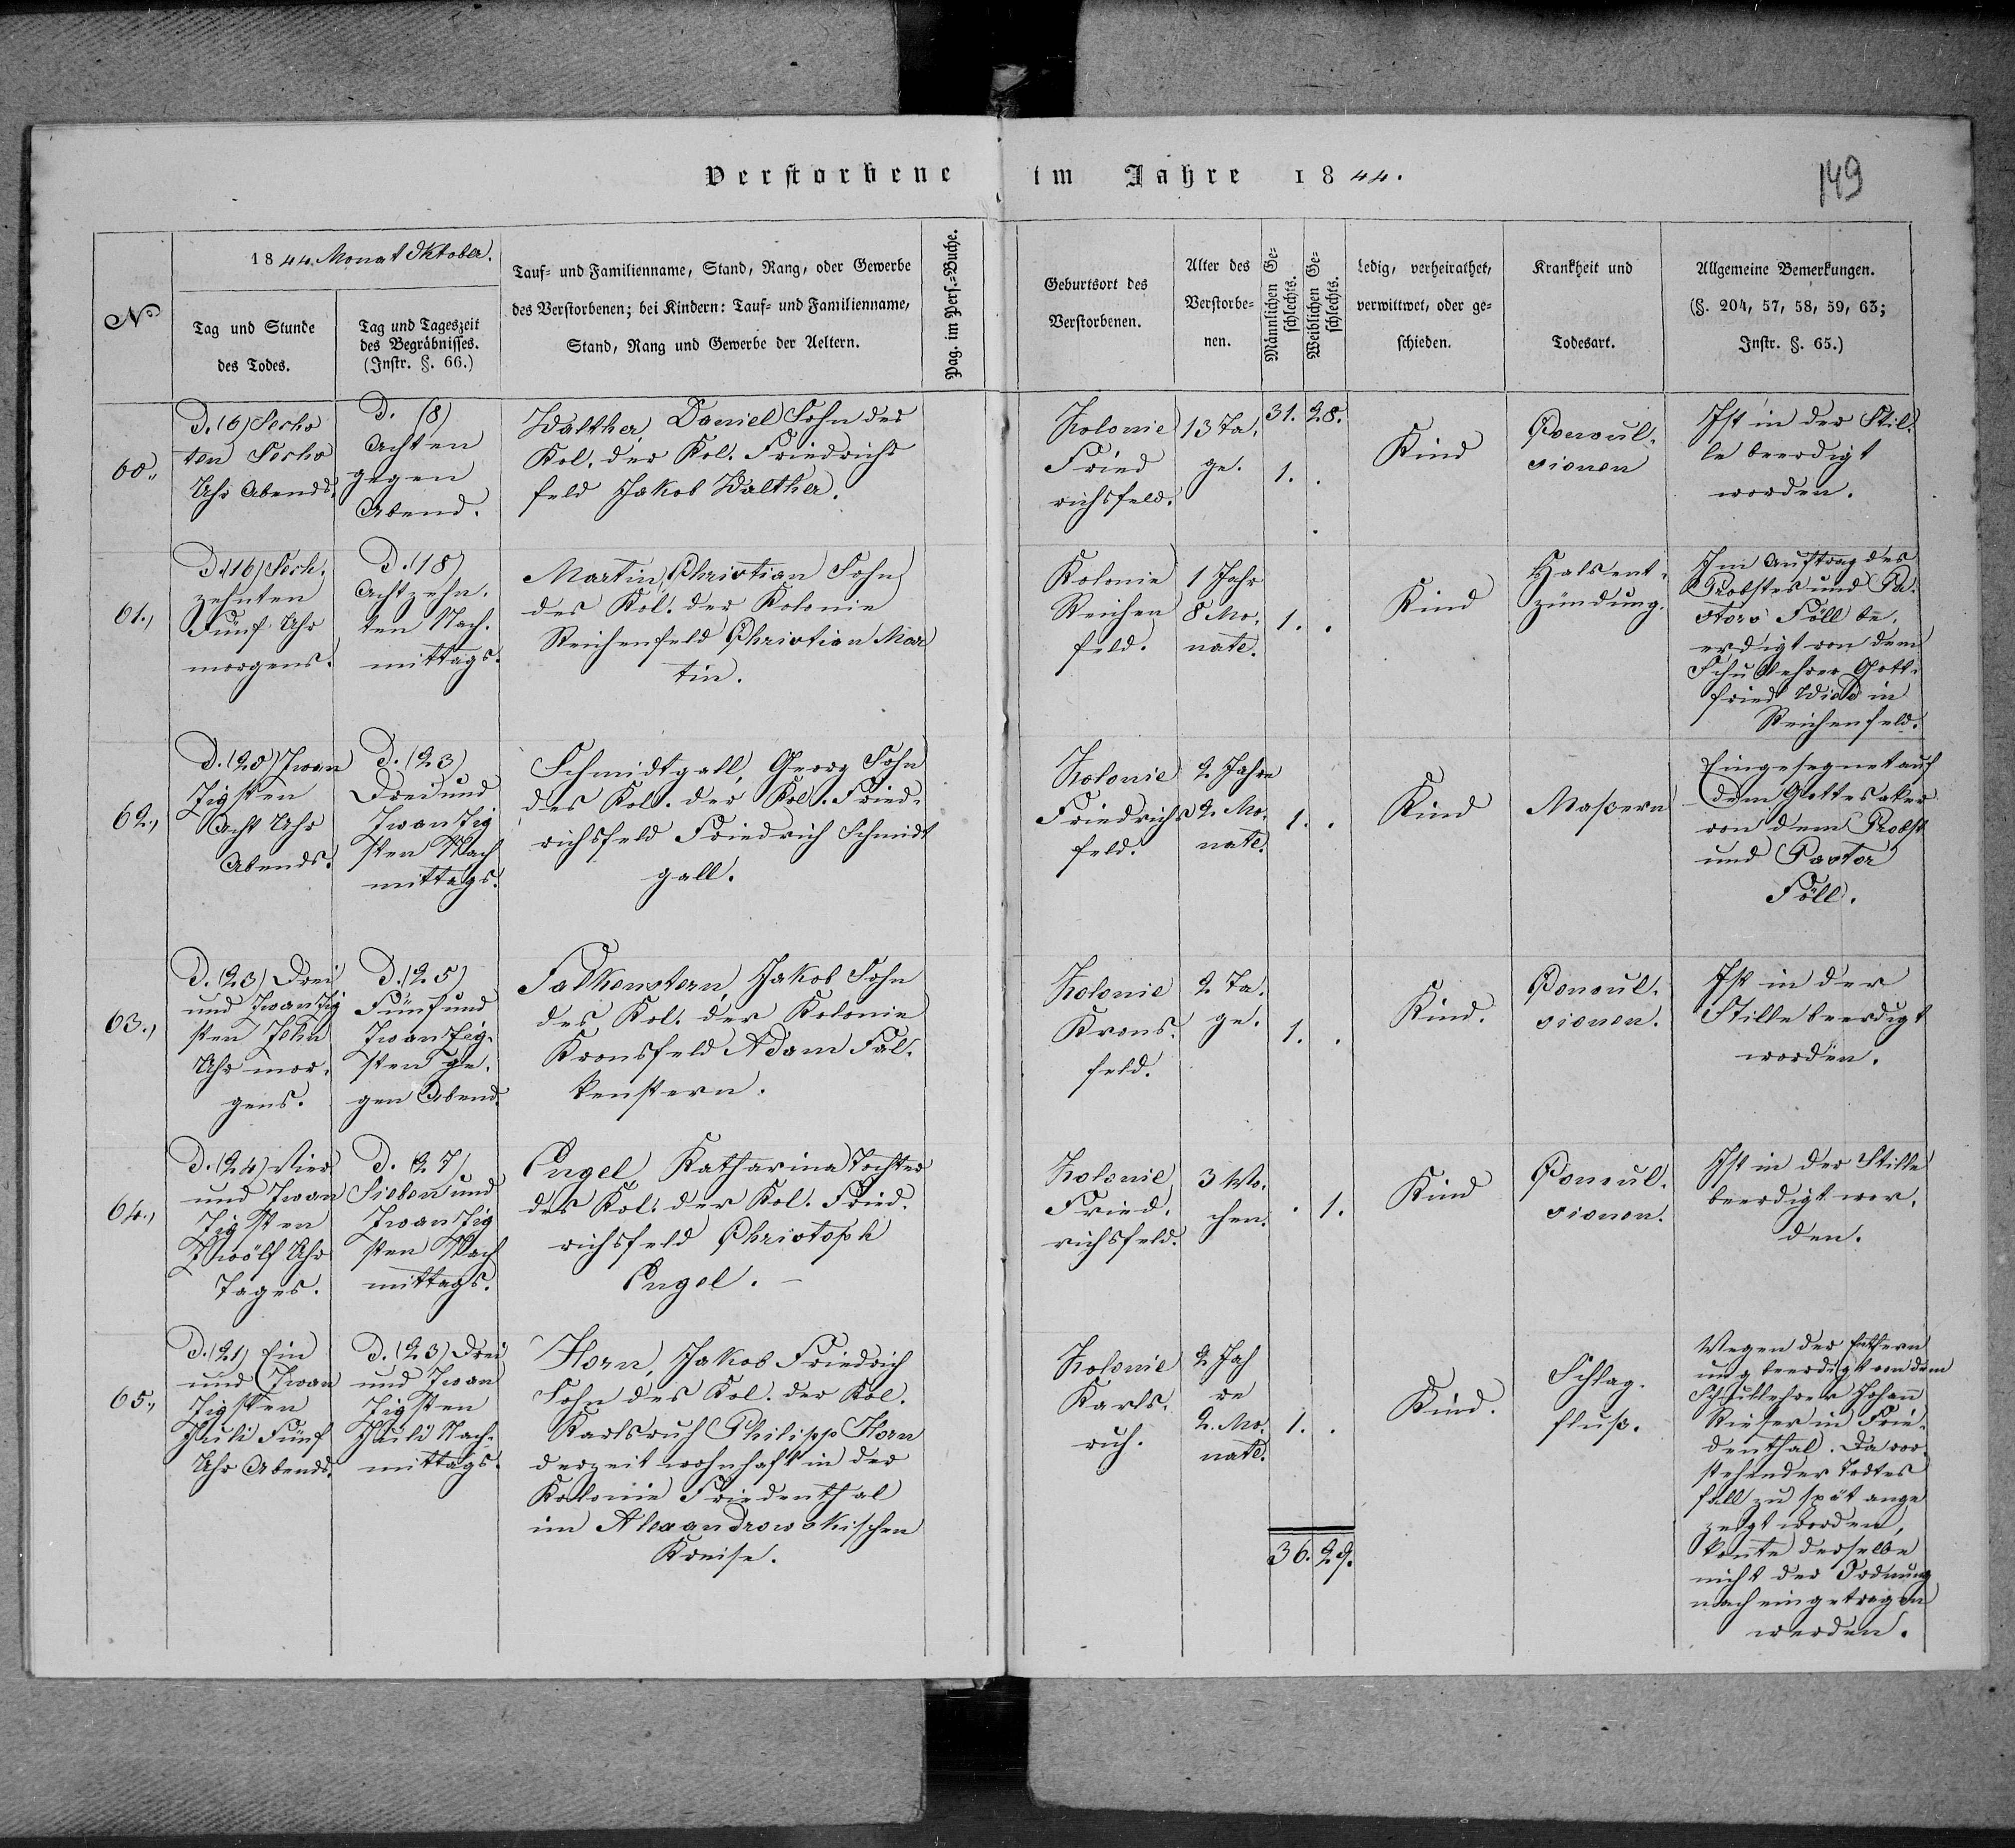 Verstorbene im Jahre 1844.
149
No
1844. Monat Oktober.
Tag und Stunde
des Todes.
Tag und Tageszeit
des Begräbnisses.
(Instr. §. 66.)
Tauf- und Familienname, Stand, Rang, oder Gewerbe
des Verstorbenen; bei Kindern: Tauf- und Familienname,
Stand, Rang und Gewerbe der Aeltern.
Pag. im Pers.-Buche.
Geburtsort des
Verstorbenen.
Alter des
Verstorbe-
nen.
Männlichen Ge-
schlechts.
Weiblichen Ge-
schlechts.
Ledig, verheirathet,
verwittwet, oder ge-
schieden.
Krankheit und
Todesart.
Allgemeine Bemerkungen.
(§. 204, 57, 58, 59, 63;
Instr. §. 65.)
60.,
D. (6) Sechs
ten Sechs
Uhr Abends.
D. (8)
Achten
gegen
Abend.
Walther, Daniel Sohn des
Kol. der Kol. Friedrichs
feld Jakob Walther.
Kolonie
Fried
richsfeld.
13 Ta.
ge.
31. 28.
1. .
Kind
Convul.
sionen
Ist in der Stil.
le beerdigt
worden.
61.,
D. (16) Sech.
zehnten
Fünf Uhr
morgens.
D. (18)
Achtzehn.
ten Nach.
mittags.
Martin, Christian Sohn
des Kol. der Kolonie
Reichenfeld Christian Mar
tin.
Kolonie
Reichen
feld.
1 Jahr
8 Mo.
nate.
1. .
Kind
Halsent.
zündung.
Im Auftrag des
Probstes und Pa.
stors Föll be.
erdigt von dem
Schullehrer Gott.
fried Wied in
Reichenfeld.
62.,
D. (20) Zwan
zigsten
Acht Uhr
Abends.
D. (23)
Drei und
Zwanzig
sten Nach
mittags.
Schmidtgall, Georg Sohn
des Kol. der Kol. Fried.
richsfeld Friedrich Schmidt
gall.
Kolonie
Friedrichs
feld.
2 Jahre
2. Mo.
nate.
1. .
Kind
Maßern
Eingesegnet auf
dem Gottesaker
von dem Probst
und Pastor
Föll.
63.,
D. (23) Drei
und Zwanzig
sten Zehn
Uhr mor.
gens.
D. (25)
Fünf und
Zwanzig.
sten ge.
gen Abend.
Falkenstern, Jakob Sohn
des Kol. der Kolonie
Kronsfeld Adam Fal.
kenstern.
Kolonie
Krons.
feld.
2 Ta.
ge.
1. .
Kind.
Convul.
sionen.
Ist in der
Stille beerdigt
worden.
64.,
D. (24) Vier
und Zwan
zigsten
Zwölf Uhr
Tages.
D. (27)
Sieben und
Zwanzig
sten Nach
mittags.
Engel, Katharina Tochter
des Kol. der Kol. Fried.
richsfeld Christoph
Engel. –
Kolonie
Fried.
richsfeld.
3 Wo.
chen.
. 1.
Kind
Convul.
sionen.
Ist in der Stille
beerdigt wor.
den.
65.,
D. (21) Ein
und Zwan
zigsten
Juli Fünf
Uhr Abends.
D. (23) Drei
und Zwan
zigsten
Juli Nach-
mittags.
Horn, Jakob Friedrich
Sohn des Kol. der Kol.
Karlsruh Philipp Horn
derzeit wohnhaft in der
Kolonie Friedenthal
im Alexandrowskischen
Kreise.
Kolonie
Karls.
ruh.
2 Jah
re
2. Mo.
nate.
1. .
Kind.
Schlag.
fluß.
Wegen der Entfern
ung beerdigt von dem
Schullehrer Johann
in Frie.
denthal. Da vor
stehender Todtes
fall zu spät ange
zeigt worden,
konnte derselbe
nicht der Ordnung
nach eingetragen
werden.
36. 29.